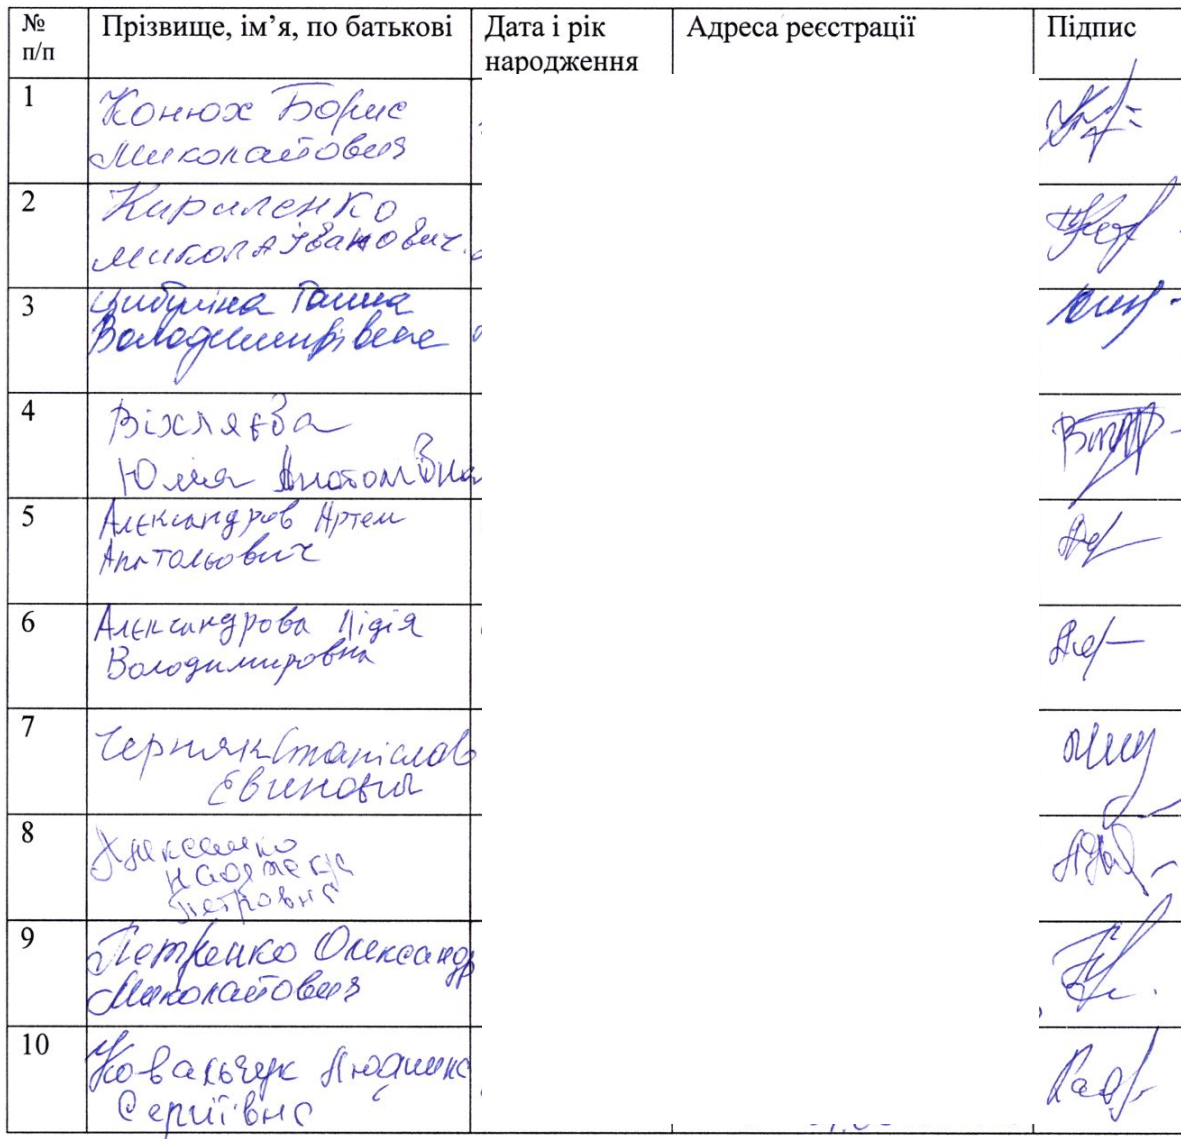 № п/п Прізвище, ім’я, по батькові Дата і рік народження Адреса реєстрації Підпис
1 Конюх Борис
Миколайович
2 Кириленко
Микола Іванович
3 Цибуліна Ганна
Володимирівна
4 Віхляєва
Юлія Анатоліївна
5 Алєксандров Артем
Анатольович
6 Алєксандрова Лідія
Володимировна
7 Черняк Станіслав
8
Петровна
9 Петренко Олександр
Миколайович
10 Ковальчук Людмила
Сергіївна